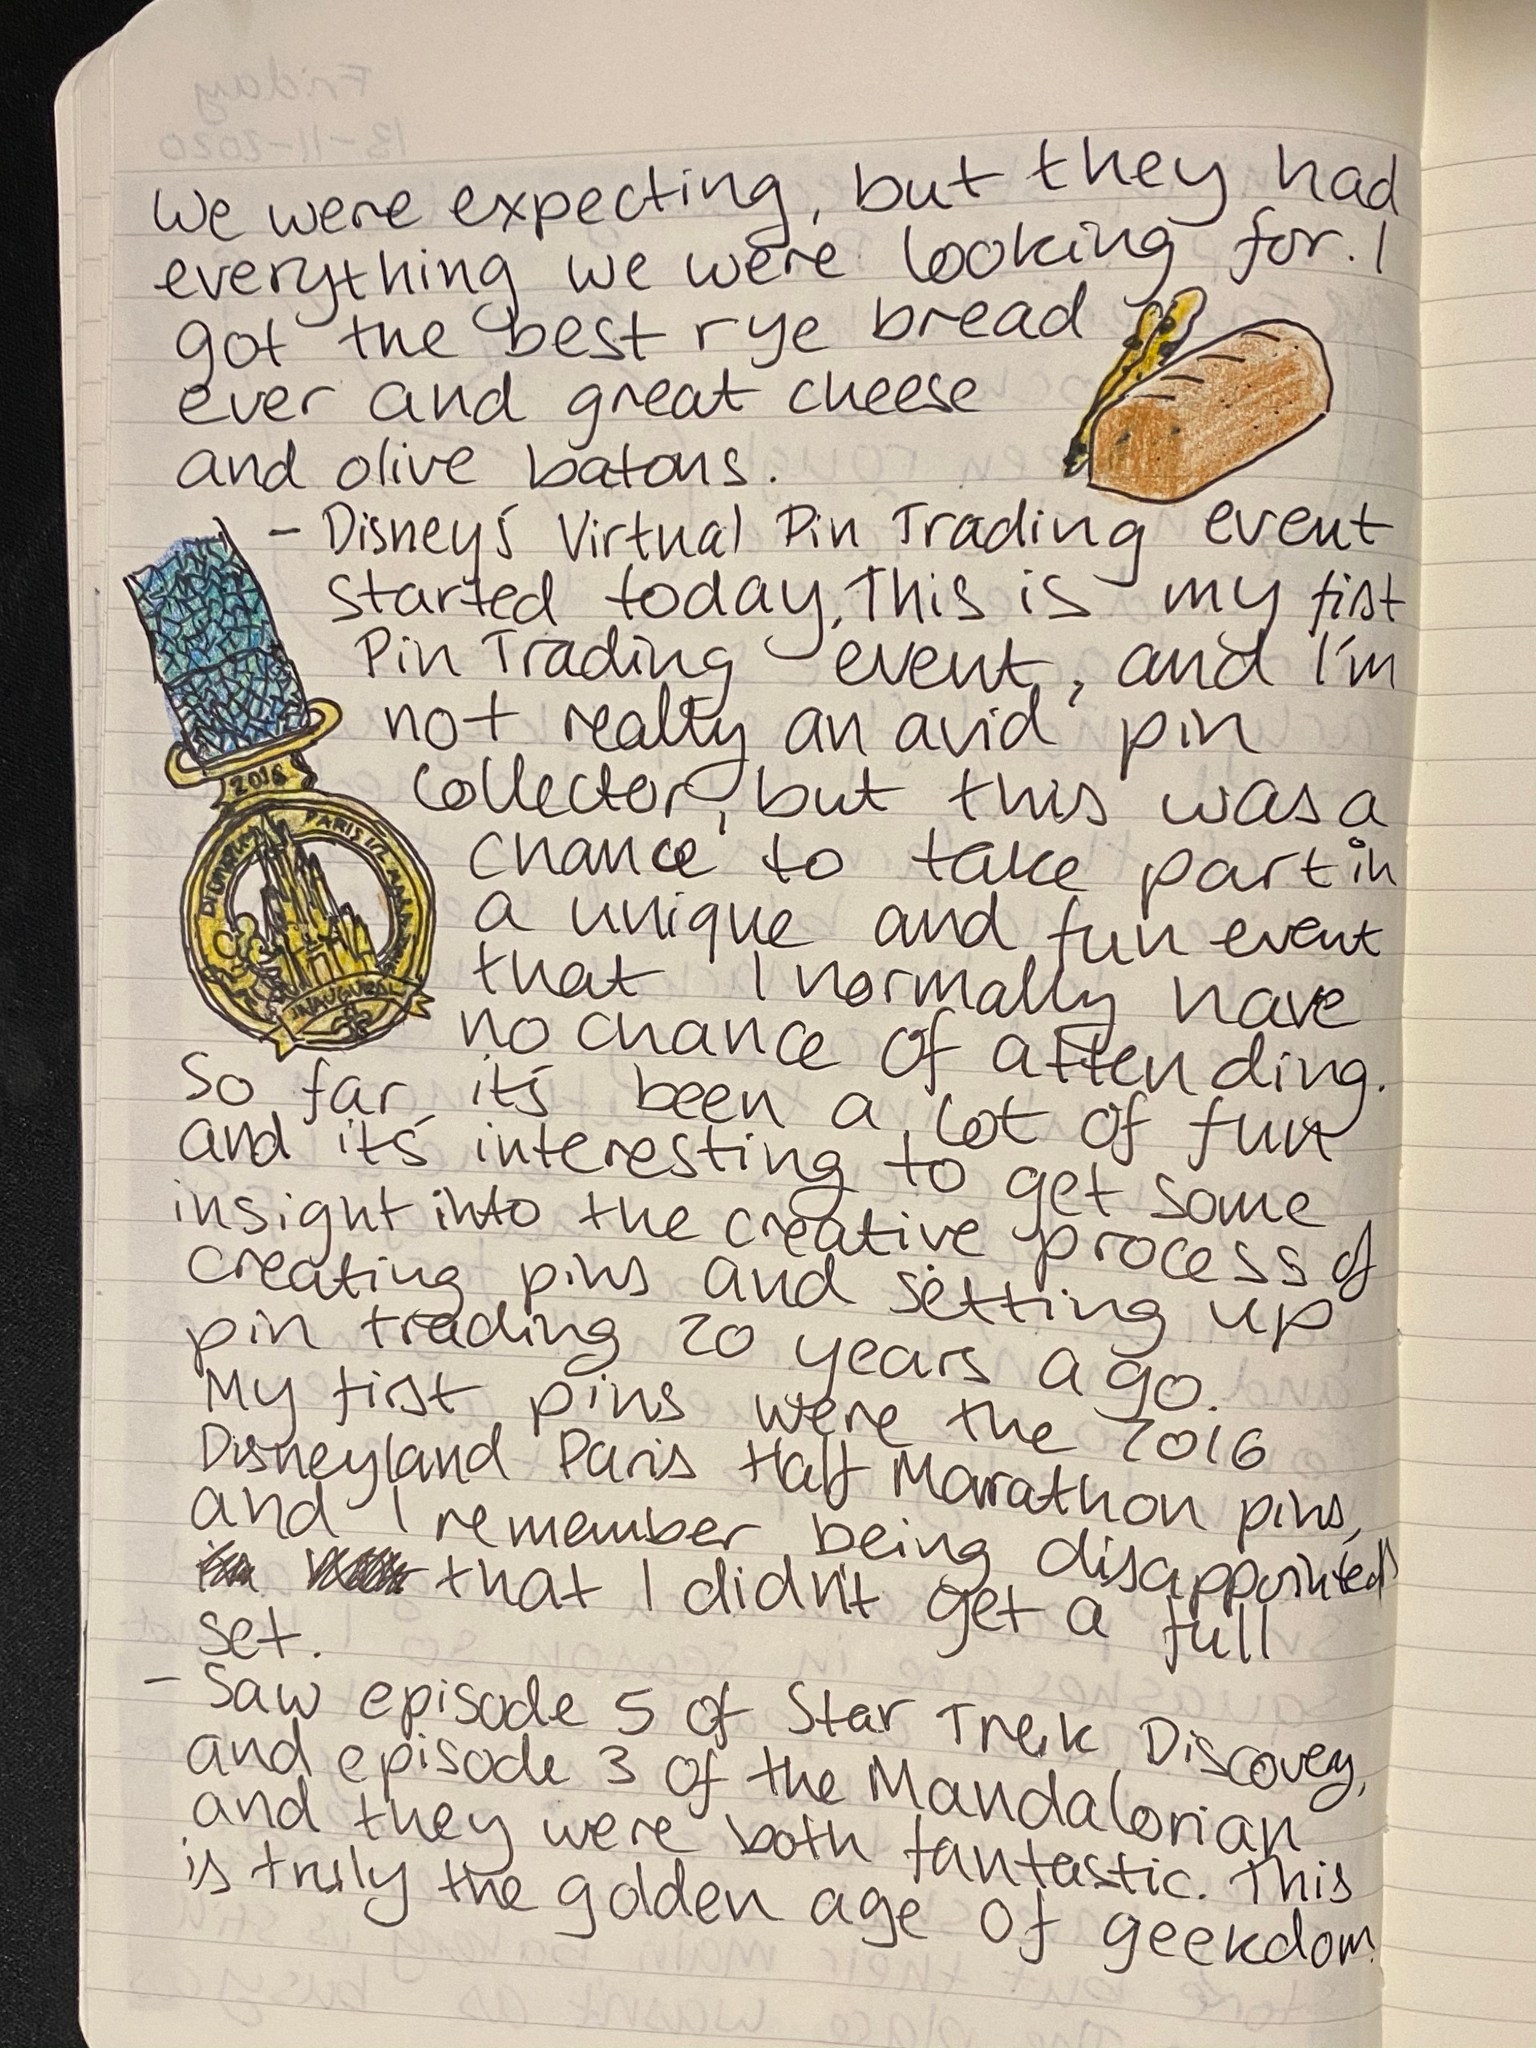 We were expecting, but they had
everything we were looking for. I
got the best rye bread
ever and great cheese
and olive batons.
- Disney's Virtual Pin Trading event
started today. This is my first
Pin Trading event, and I'm
not really an avid pin
collector, but this was a
chance to take part in
a unique and fun event
that I normally have
no chance of attending.
So far, it's been a lot of fun
and it's interesting to get some
insight into the creative process of
creating pins and setting up
pin trading 20 years ago.
My first pins were the 2016
Disneyland Paris Half Marathon pins,
and I remember being disappointed
that I didn't get a full
set.
- Saw episode 5 of Star Trek Discovey,
and episode 3 of the Mandalorian
and they were both fantastic. This
is truly the golden age of geekdom.
2016
PARIS
INAUGURAL
Friday
13-11-2020